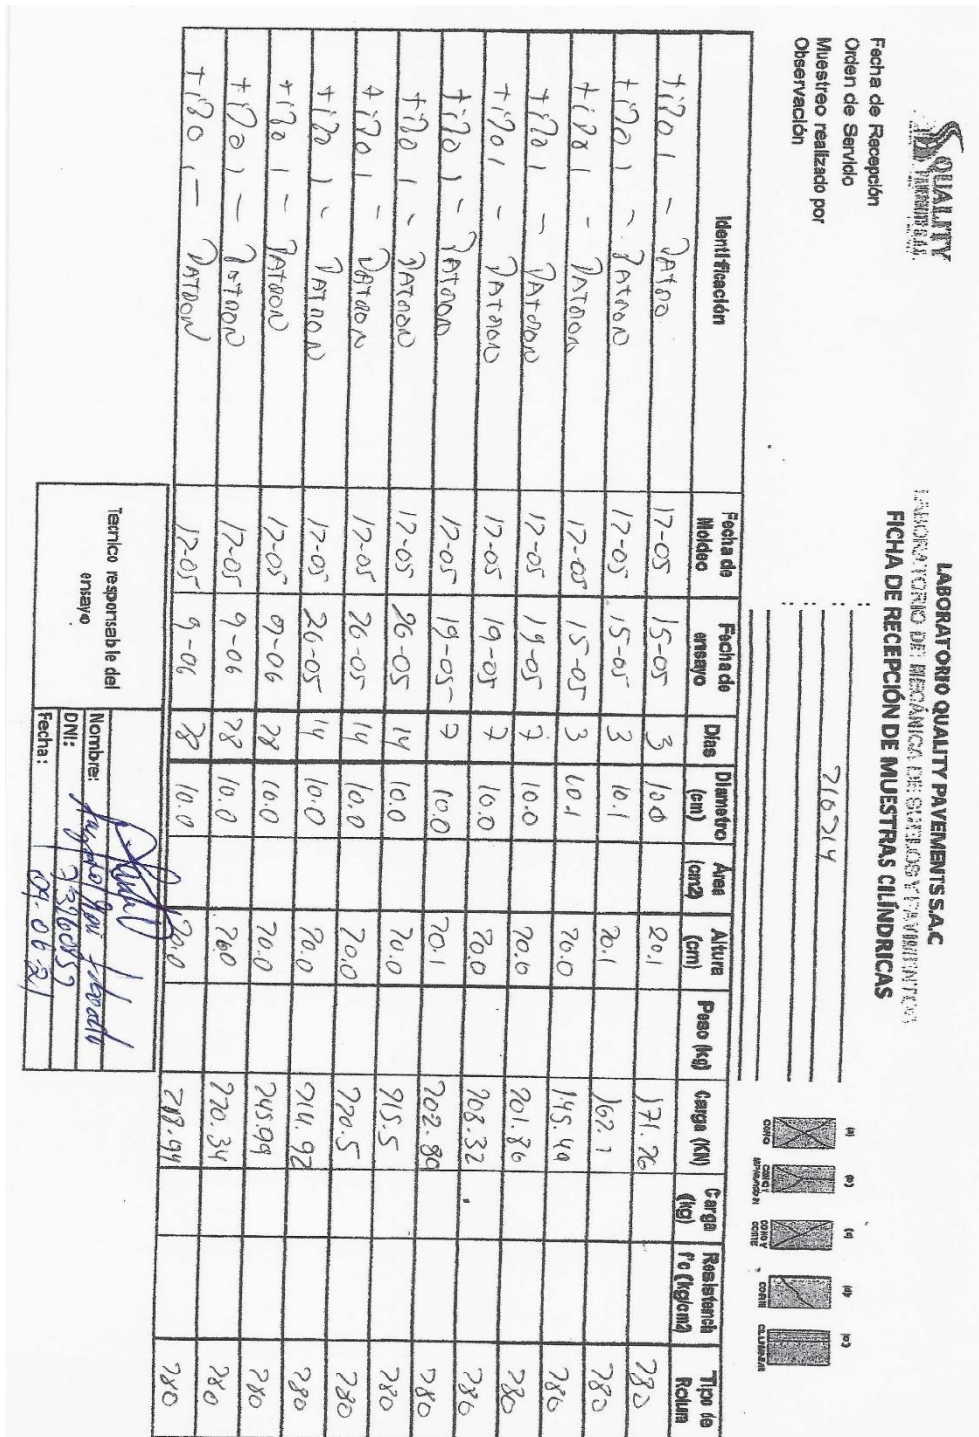 QUALITY
PAVEMENTS S.A.C.
LABORATORIO QUALITY PAVEMENTS S.A.C
LABORATORIO DE MECÁNICA DE SUELOS Y PAVIMENTOS
FICHA DE RECEPCIÓN DE MUESTRAS CILÍNDRICAS
Fecha de Recepción :
Orden de Servicio : 210214
Muestreo realizado por :
Observación :
(a) (b) (c) (d) (e)
CONO CONO Y CORTE CORTE
Identificación Fecha de Moldeo Fecha de ensayo Días Diametro (cm) Área (cm2) Altura (cm) Peso (kg) Carga (KN) Carga (kg) Resistench f'c (kg/cm2) Tipo de Rotura
tipo 1 - PATRO 12-05 15-05 3 10.0 20.1 171.26 280
tipo 1 - PATRON 12-05 15-05 3 10.1 20.1 162.1 280
tipo 1 - PATRON 12-05 15-05 3 10.1 20.0 145.40 280
tipo 1 - PATRON 12-05 19-05 7 10.0 20.0 201.86 280
tipo 1 - PATRON 12-05 19-05 7 10.0 20.0 208.32 280
tipo 1 - PATRON 12-05 19-05 7 10.0 20.1 202.80 280
tipo 1 - PATRON 12-05 26-05 14 10.0 20.0 215.5 280
tipo 1 - PATRON 12-05 26-05 14 10.0 20.0 220.5 280
tipo 1 - PATRON 12-05 26-05 14 10.0 20.0 214.92 280
tipo 1 - PATRON 12-05 09-06 28 10.0 20.0 245.99 280
tipo 1 - PATRON 12-05 9-06 28 10.0 20.0 220.34 280
tipo 1 - PATRON 12-05 9-06 28 10.0 20.0 280
Tecnico responsable del ensayo
Nombre:
DNI:
Fecha: 09-06-21